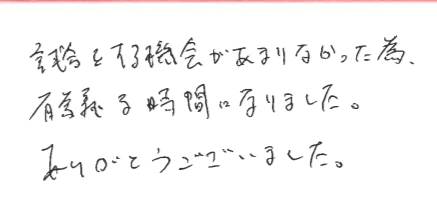 議論をする機会があまりなかった為、
有意義な時間になりました。
ありがとうございました。